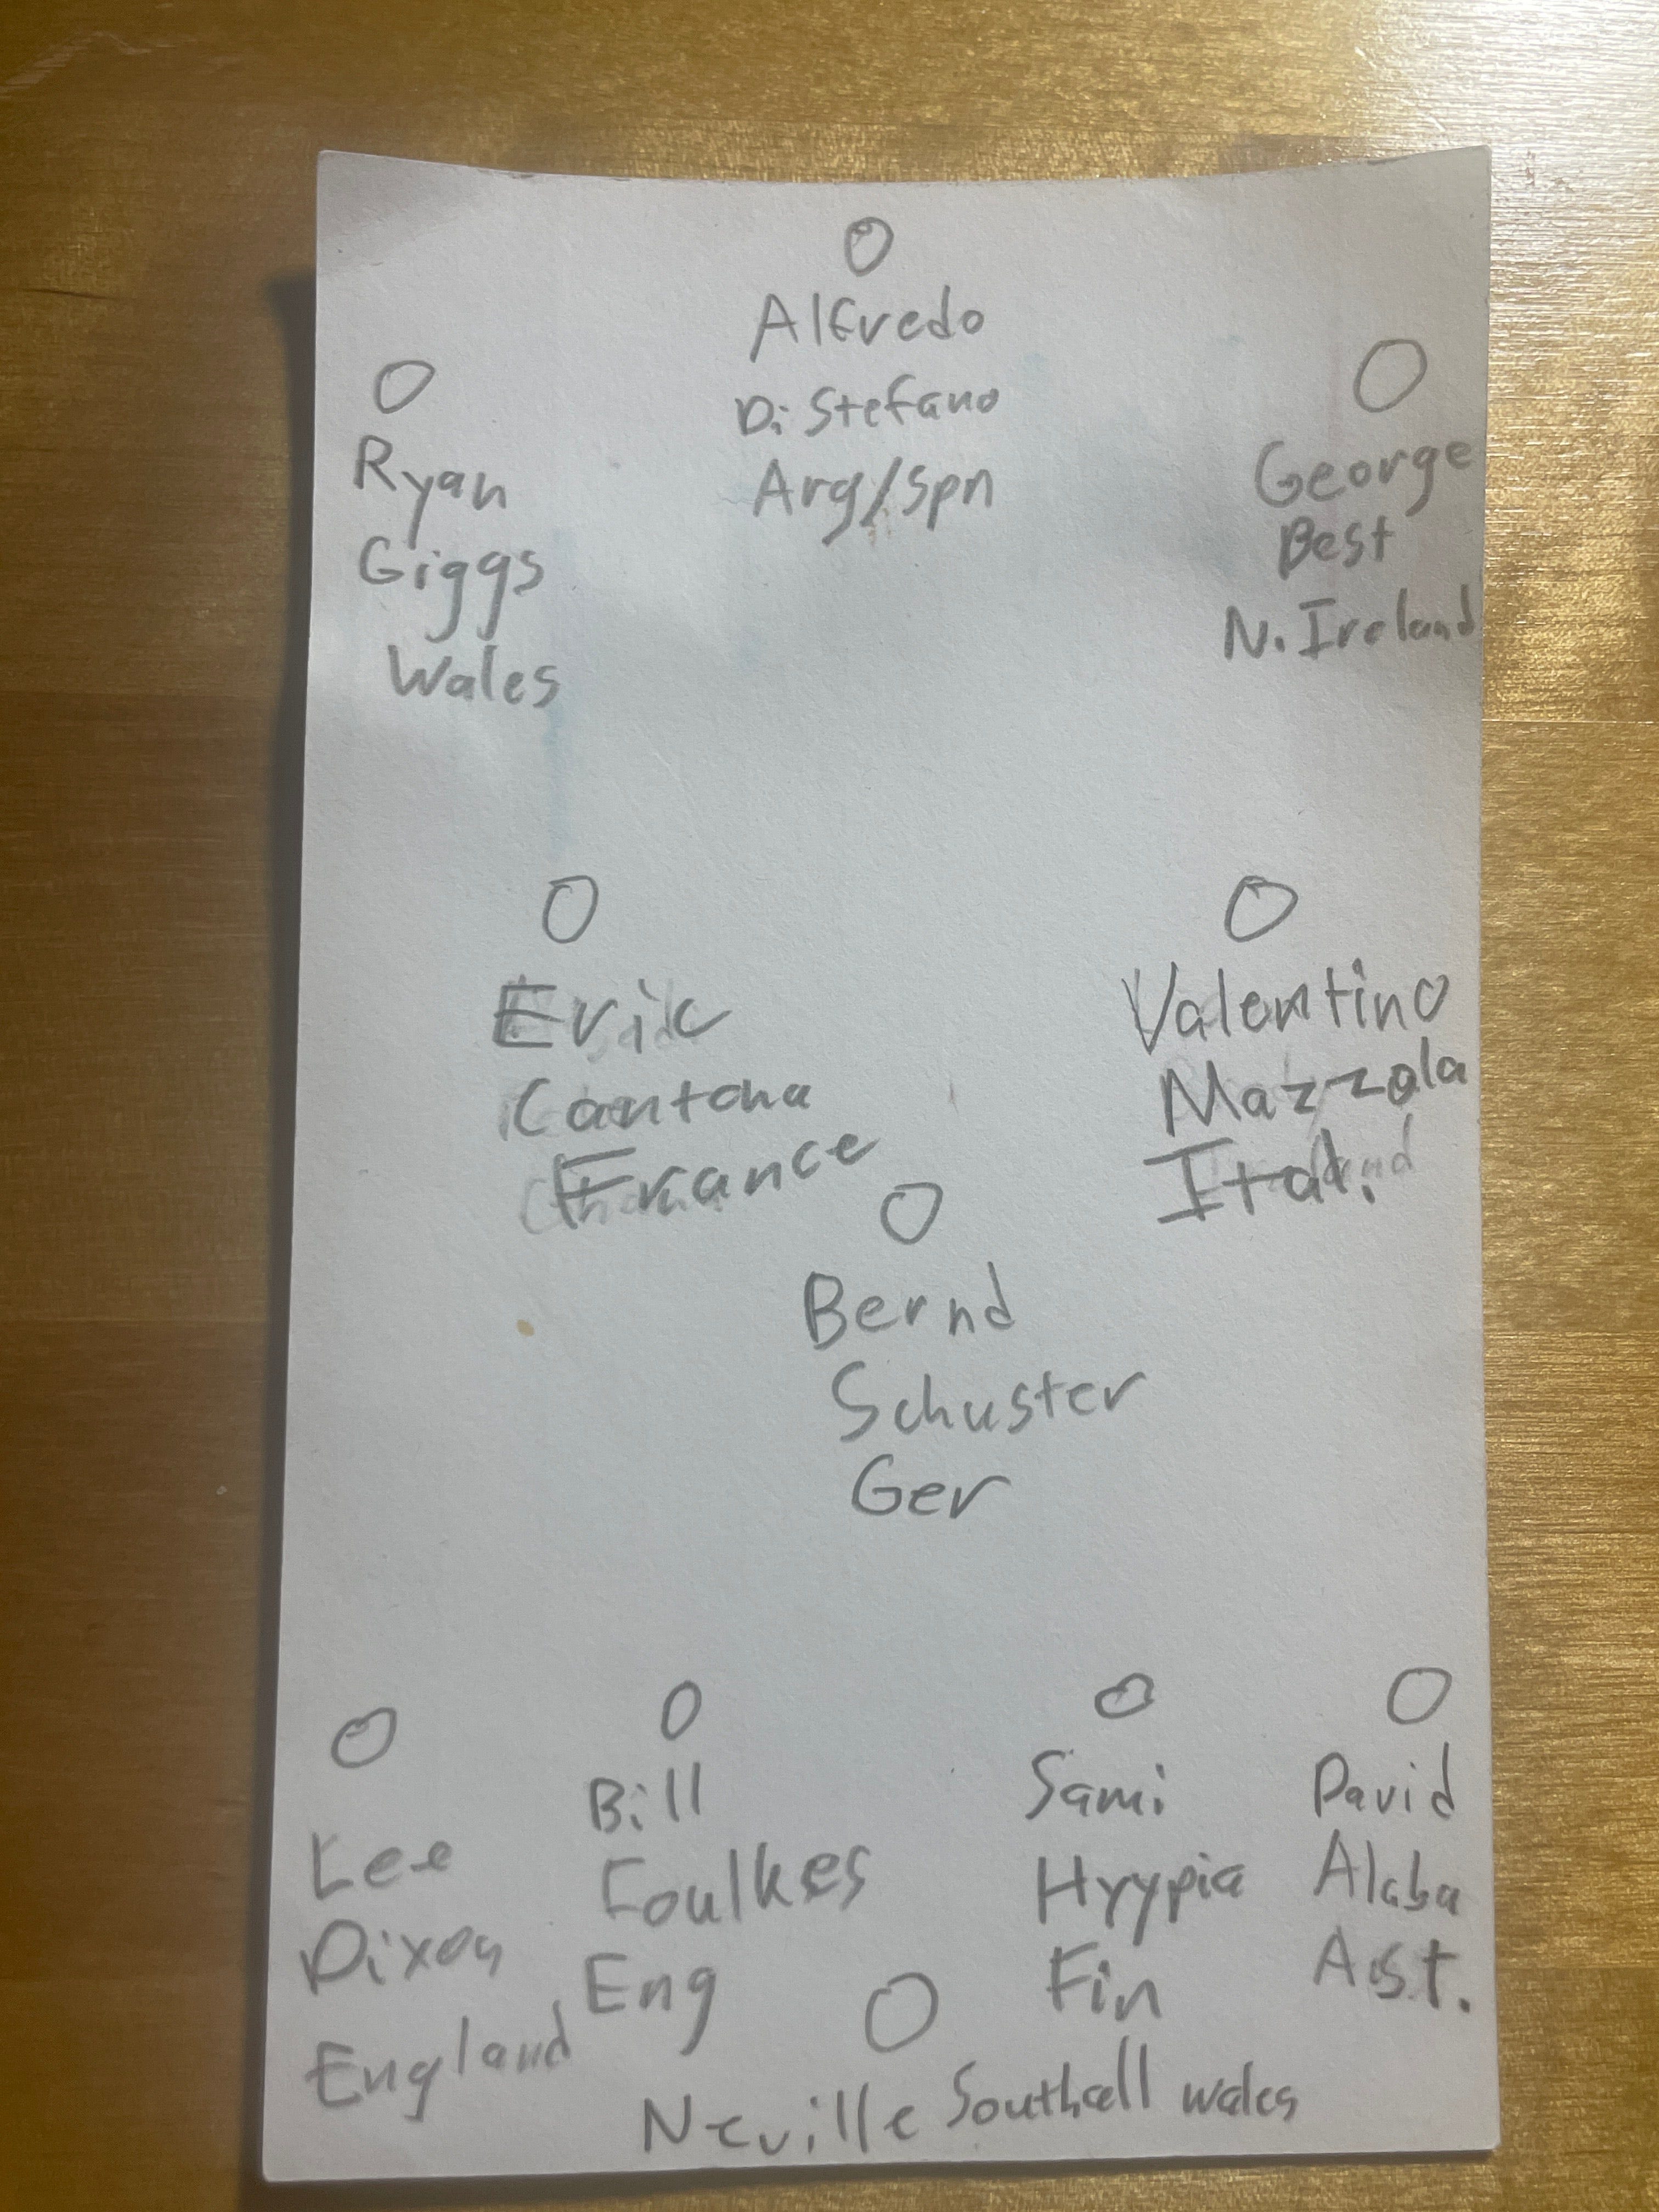 Alfredo
Di Stefano
Arg/Spn
Ryan
Giggs
Wales
George
Best
N. Ireland
Eric
Cantona
France
Valentino
Mazzola
Ital.
Bernd
Schuster
Ger
Lee
Dixon
England
Bill
Foulkes
Eng
Sami
Hyypia
Fin
David
Alaba
Aust.
Neville Southall Wales